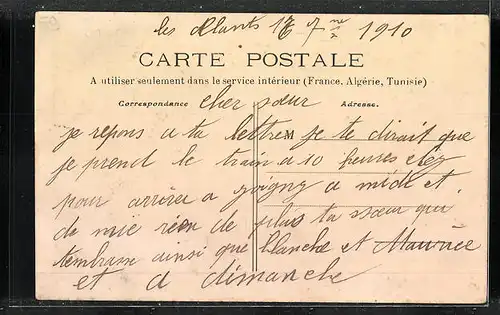 les 17 7bre 1910
CARTE POSTALE
A utiliser seulement dans le service intérieur (France, Algérie, Tunisie)
Correspondance cher sœur Adresse.
je repons a ta lettre M je te dirait que
je prend le train a 10 heures
pour arriver a joigny a midi et
de mie rien de plus ta sœur qui
tembrasse ainsi que blanche et Maurice
et a dimanche